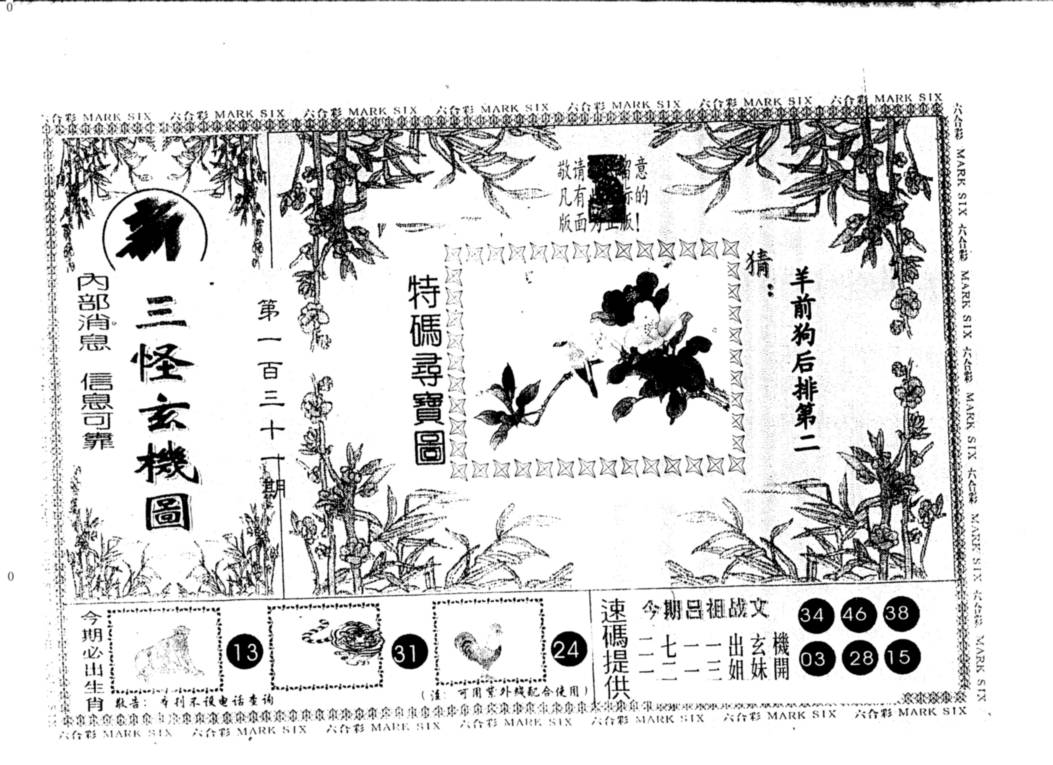 六合彩 MARK SIX 六合彩 MARK SIX 六合彩 MARK SIX 六合彩 MARK SIX 六合彩 MARK SIX 六合彩 MARK SIX 六合彩 MARK SIX
新
三怪玄機圖
內部消息 信息可靠
第一百三十一期
敬请 留意
凡有 标的
版面为正版!
特碼尋寶圖
猜:
羊前狗后排第二
六合彩 MARK SIX 六合彩 MARK SIX 六合彩 MARK SIX 六合彩 MARK SIX 六合彩 MARK SIX
今期必出生肖
13
31
24
敬告: 本刊不设电话查询
(注: 可用紫外线配合使用)
速碼提供
今期吕祖战文
二七一一出玄機
一二一三姐妹開
34 46 38
03 28 15
六合彩 MARK SIX 六合彩 MARK SIX 六合彩 MARK SIX 六合彩 MARK SIX 六合彩 MARK SIX 六合彩 MARK SIX 六合彩 MARK SIX